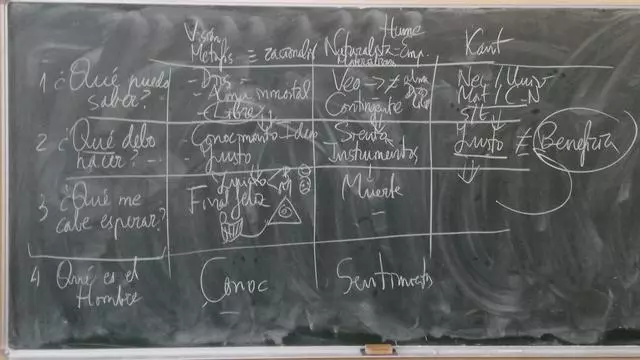 Hume
Metafís = racionalis Naturalista-Emp. Kant
Materialismo
1 ¿Qué puedo saber?
- Dios -
- Alma inmortal
- Libre
Veo → ≠ alma Dios
Contingente
Nec / Univ
Mat / C-N
2 ¿Qué debo hacer? -
- Conocimiento - Ideas
- Justo
Sienta
Instrumentos
Justo ≠ Beneficia
3 ¿Qué me cabe esperar?
Final feliz
Muerte
-
4 Qué es el Hombre
Conoc
-
Sentimientos